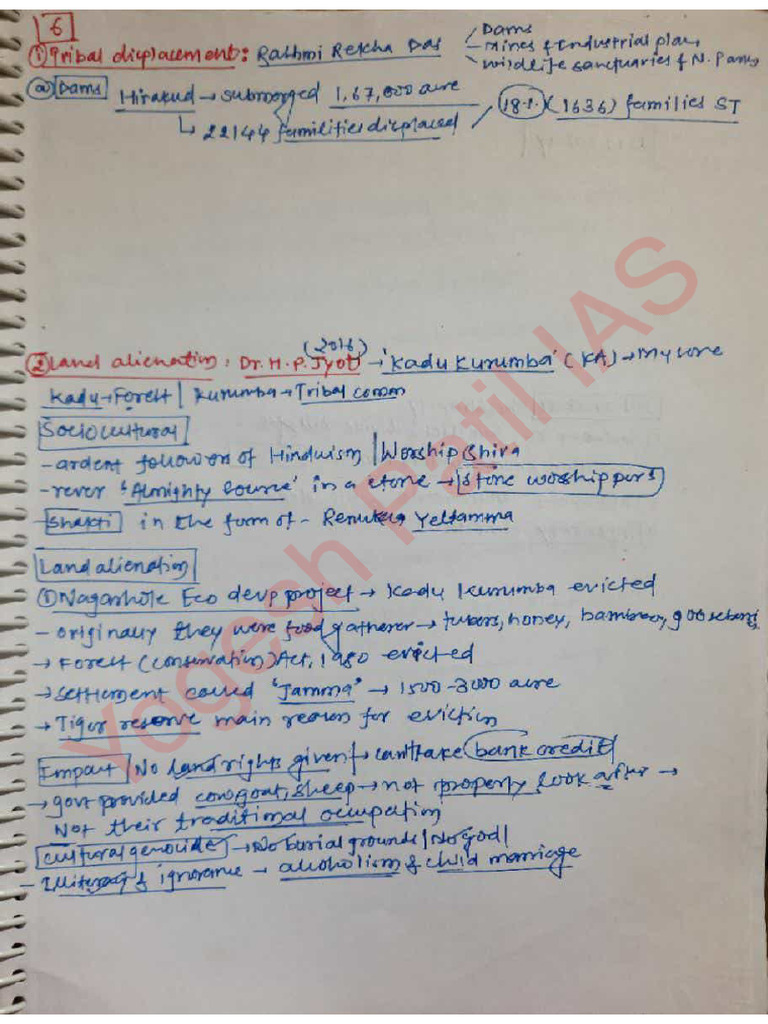 6
① Tribal displacement: Rashmi Rekha Das
- Dams
- Mines & Industrial plan
- Wildlife sanctuaries & N. Parks
ⓐ Dams Hirakud → submerged 1,67,000 acre
↳ 22144 familities displaced / 18% (1636) families ST
② Land alienation: Dr. H.P. Jyoti (2016) → 'Kadu Kurumba' (KA) → Mysore
Kadu → Forest | Kurumba → Tribal comm
Sociocultural
- ardent followers of Hinduism | Worship Shiva
- rever 'Almighty source' in a stone → Stone worshippers
- Shakti in the form of - Renuka Yellamma
Land alienation
① Nagarhole Eco devp project → Kadu Kurumba evicted
- originally they were food gatherer → tubers, honey, bamboo,
→ Forest (conservation) Act, 1980 evicted
→ settlement called "Jamma" → 1500-3000 acre
→ Tiger reserve main reason for eviction
Impact | No land rights given → can't take bank credit
→ govt provided cow, goat, sheep → not property look after →
Not their traditional occupation
cultural genocide → No burial grounds | No god |
- Illiteracy & ignorance → alcoholism & child marriage
Yogesh Patil IAS